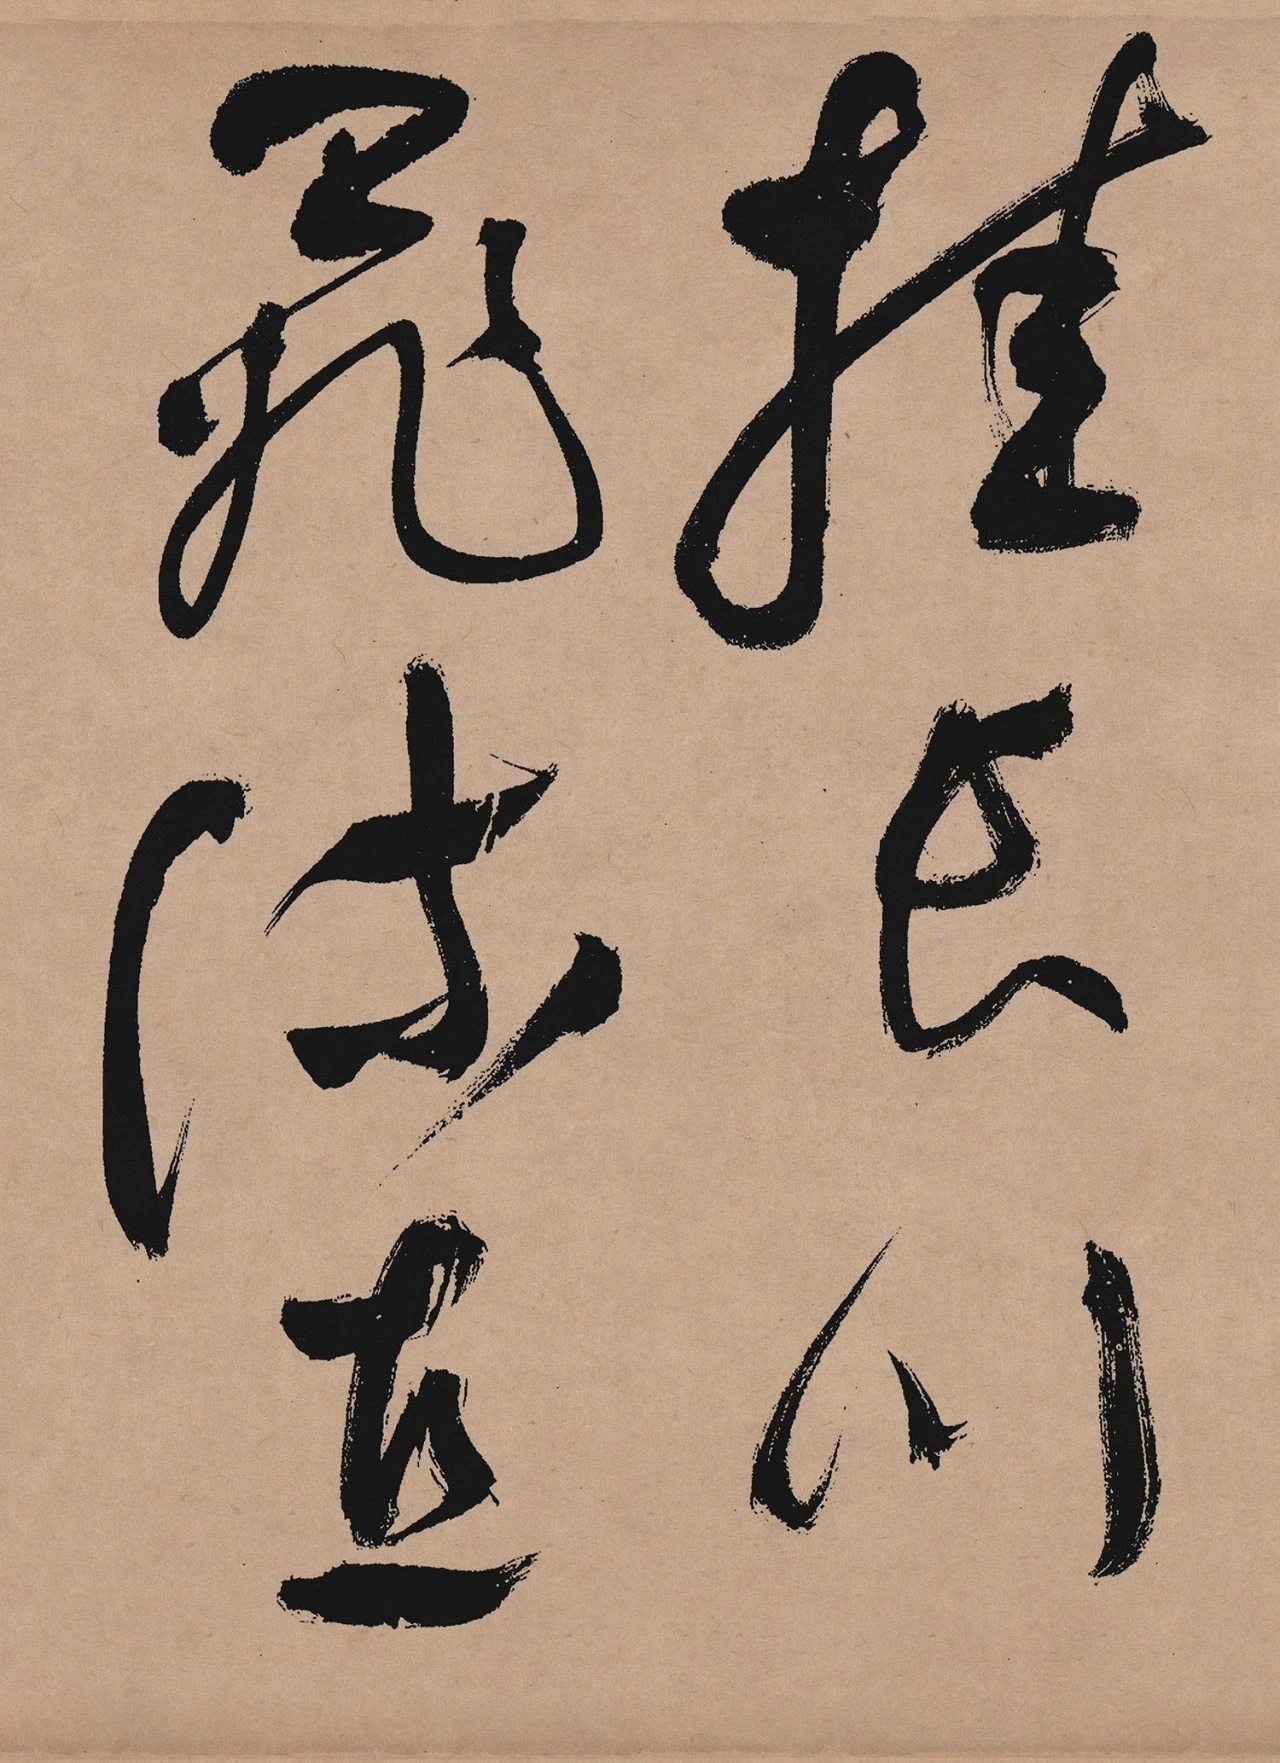 挂長川
飛流直